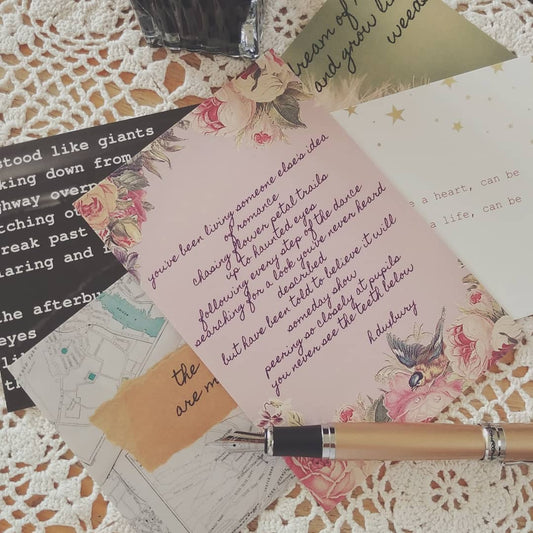 stood like giants
king down from
ghway overp
tching ot
reak past
laring and

he afterbu
eyes
li
th
dream of
and grow li
weed
e a heart, can be
a life, can be
you've been living someone else's idea
of romance
chasing flower petal trails
up to haunted eyes
following every step of the dance
searching for a look you've never heard
described
but have been told to believe it will
someday show
peering so closely at pupils
you never see the teeth below
h.duxbury
the
are m